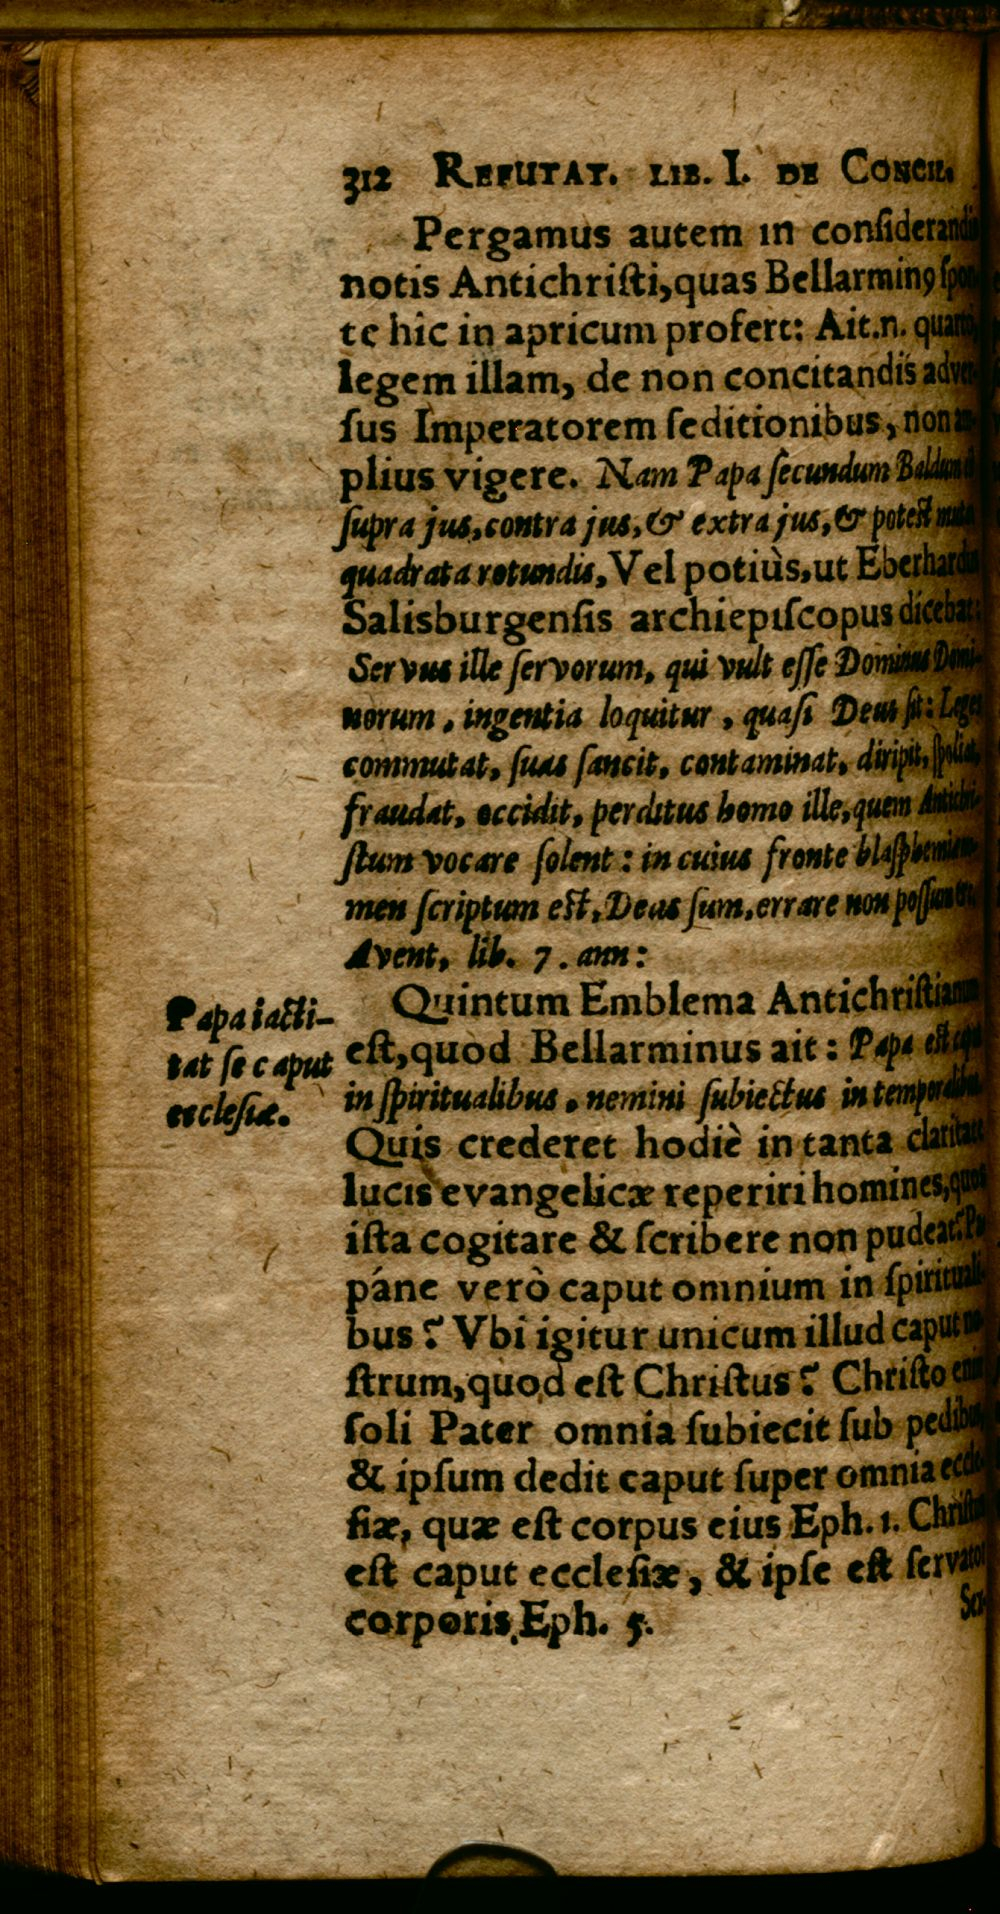 312 REFUTAT. LIB. I. DE CONCIL.
Pergamus autem in conſiderandis
notis Antichriſti, quas Bellarminꝰ ſpon-
te hîc in apricum profert: Ait.n. quartò,
legem illam, de non concitandis adver-
ſus Imperatorem ſeditionibus, non am-
plius vigere. Nam Papa ſecundum Baldum est
ſupra jus, contra jus, & extra jus, & potest
quadrata rotundis, Vel potiùs, ut Eberhardus
Salisburgenſis archiepiſcopus dicebat:
Servus ille ſervorum, qui vult eſſe Dominus Domi-
norum, ingentia loquitur, quaſi Deus ſit: Leges
commutat, ſuas ſancit, contaminat, diripit, ſpoliat,
fraudat, occidit, perditus homo ille, quem Antichri-
ſtum vocare ſolent: in cuius fronte blaſphemiæ no-
men ſcriptum est, Deus ſum, errare non poſſum
Avent, lib. 7. ann:
Papa iacti-
tat ſe caput
ecclesiæ.
Quintum Emblema Antichriſtianum
eſt, quod Bellarminus ait: Papa est caput
in ſpiritualibus, nemini ſubiectus in temporalibus.
Quis crederet hodiè in tanta claritate
lucis evangelicæ reperiri homines, quos
iſta cogitare & ſcribere non pudeat? Pa-
páne verò caput omnium in ſpirituali-
bus? Vbi igitur unicum illud caput no-
ſtrum, quod eſt Chriſtus? Chriſto enim
ſoli Pater omnia ſubiecit ſub pedibus,
& ipſum dedit caput ſuper omnia eccle-
ſiæ, quæ eſt corpus eius Eph. 1. Chriſtus
eſt caput eccleſiæ, & ipſe eſt ſervator
corporis, Eph. 5.
Sex-